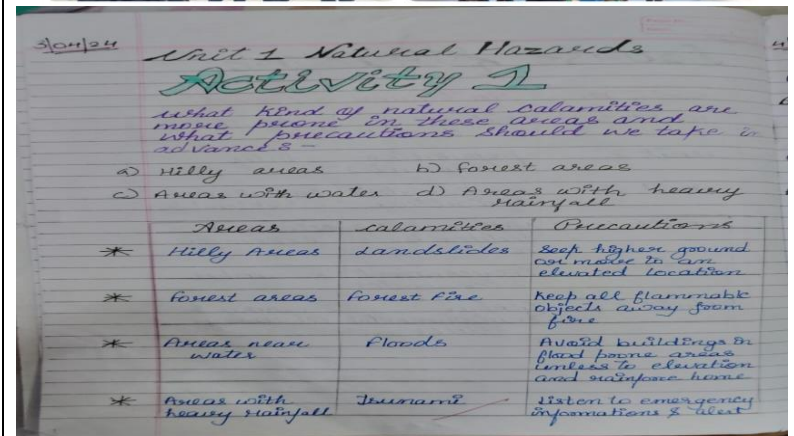 3/04/24
Unit 1 Natural Hazards
Activity 1
what kind of natural calamities are
more prone in these areas and
what precautions should we take in
advances -
a) Hilly areas b) forest areas
c) Areas with water d) Areas with heavy
rainfall
Areas calamities Precautions
* Hilly Areas Landslides Seek higher ground
or move in an
elevated location
* forest areas forest fire Keep all flammable
objects away from
fire
* Areas near Floods Avoid buildings in
water flood prone areas
unless to elevation
and rainforce home
* Areas with Tsunami Listen to emergency
heavy rainfall informations & alert